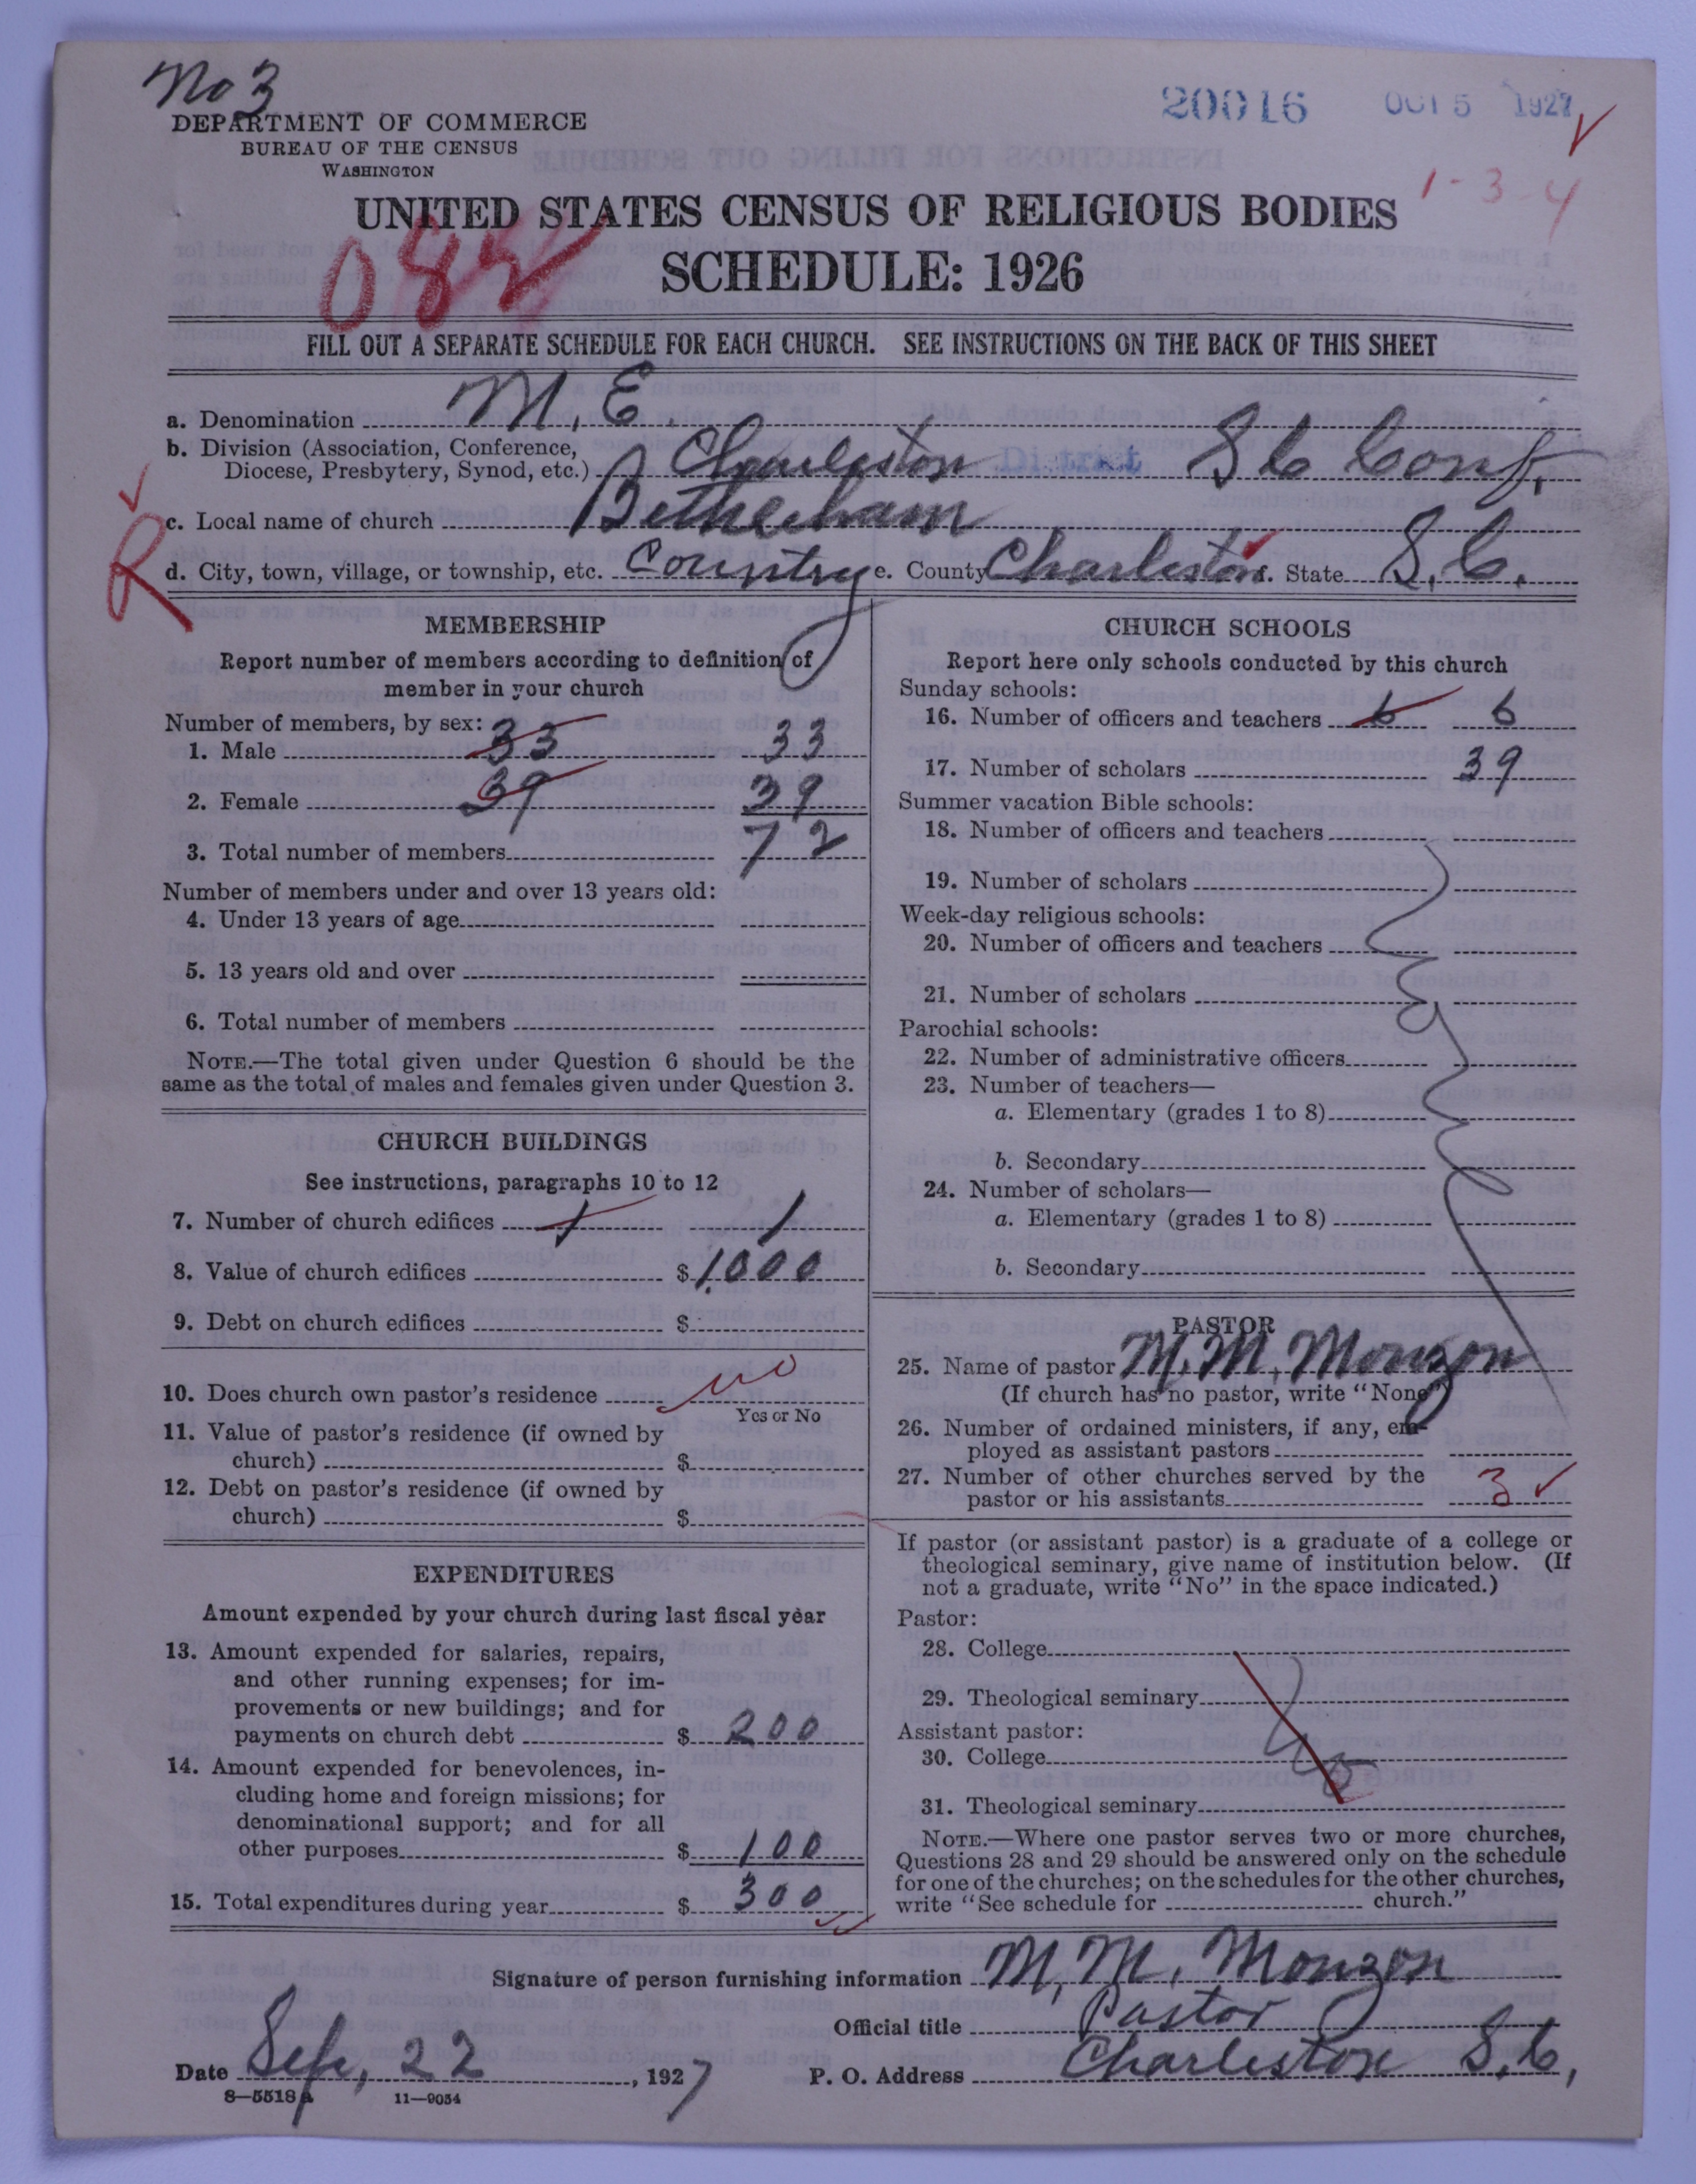 No 3
20016 OCT 5 1927
DEPARTMENT OF COMMERCE
BUREAU OF THE CENSUS
WASHINGTON
1-3-4
UNITED STATES CENSUS OF RELIGIOUS BODIES
SCHEDULE: 1926
FILL OUT A SEPARATE SCHEDULE FOR EACH CHURCH. SEE INSTRUCTIONS ON THE BACK OF THIS SHEET
a. Denomination M. E.
b. Division (Association, Conference,
Diocese, Presbytery, Synod, etc.) Charleston District S C Conf.
c. Local name of church
R
d. City, town, village, or township, etc. Country e. County Charleston f. State S. C.
MEMBERSHIP
Report number of members according to definition of
member in your church
Number of members, by sex:
1. Male 33 33
2. Female 39 39
3. Total number of members 72
Number of members under and over 13 years old:
4. Under 13 years of age
5. 13 years old and over
6. Total number of members
NOTE.—The total given under Question 6 should be the
same as the total of males and females given under Question 3.
CHURCH BUILDINGS
See instructions, paragraphs 10 to 12
7. Number of church edifices 1 1
8. Value of church edifices $ 1000
9. Debt on church edifices $
10. Does church own pastor's residence no
Yes or No
11. Value of pastor's residence (if owned by
church) $
12. Debt on pastor's residence (if owned by
church) $
EXPENDITURES
Amount expended by your church during last fiscal year
13. Amount expended for salaries, repairs,
and other running expenses; for im-
provements or new buildings; and for
payments on church debt $ 200
14. Amount expended for benevolences, in-
cluding home and foreign missions; for
denominational support; and for all
other purposes $ 100
15. Total expenditures during year $ 300
CHURCH SCHOOLS
Report here only schools conducted by this church
Sunday schools:
16. Number of officers and teachers 6 6
17. Number of scholars 39
Summer vacation Bible schools:
18. Number of officers and teachers
19. Number of scholars
Week-day religious schools:
20. Number of officers and teachers
21. Number of scholars
Parochial schools:
22. Number of administrative officers
23. Number of teachers—
a. Elementary (grades 1 to 8)
b. Secondary
24. Number of scholars—
a. Elementary (grades 1 to 8)
b. Secondary
PASTOR
25. Name of pastor M. M. Monzon
(If church has no pastor, write "None")
26. Number of ordained ministers, if any, em-
ployed as assistant pastors
27. Number of other churches served by the
pastor or his assistants 3
If pastor (or assistant pastor) is a graduate of a college or
theological seminary, give name of institution below. (If
not a graduate, write "No" in the space indicated.)
Pastor:
28. College
29. Theological seminary
Assistant pastor:
30. College
31. Theological seminary
NOTE.—Where one pastor serves two or more churches,
Questions 28 and 29 should be answered only on the schedule
for one of the churches; on the schedules for the other churches,
write "See schedule for church."
Signature of person furnishing information M. M. Monzon
Official title Pastor
Date Sep. 22, 1927 P. O. Address Charleston S. C.
8—5518 a 11—9054